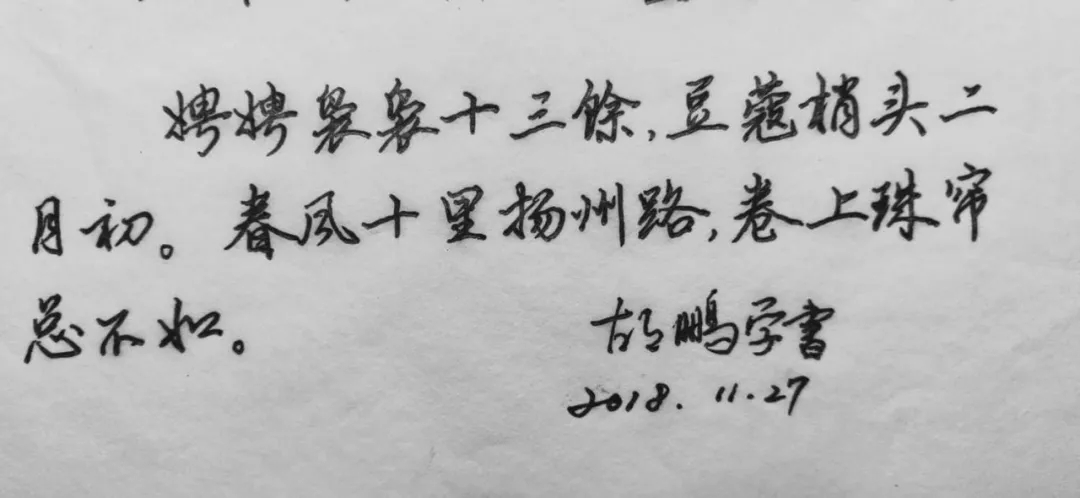 娉娉袅袅十三馀,豆蔻梢头二
月初。春风十里扬州路,卷上珠帘
总不如。
胡鹏学書
2018.11.27